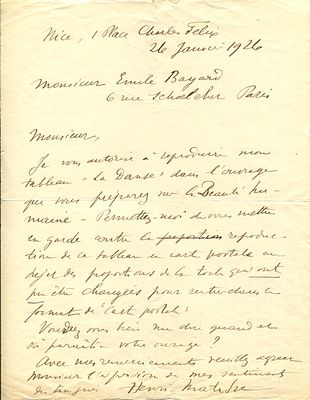 Nice, 1 Place Charles Félix
26 Janvier 1926
Monsieur Emile Bayard
6 rue Schœlcher Paris
Monsieur,
Je vous autorise à reproduire mon
tableau "La Danse" dans l'ouvrage
que vous préparez sur la Beauté hu-
maine - Permettez-moi de vous mettre
en garde contre la proportion reproduc-
tion de ce tableau en carte postale au
sujet des proportions de la toile qui ont
pu être changées pour entrer dans le
format de "carte postale"
Voudrez vous bien me dire quand et
où paraîtra votre ouvrage?
Avec mes remerciements veuillez agréer
Monsieur l'expression de mes sentiments
distingués Henri Matisse